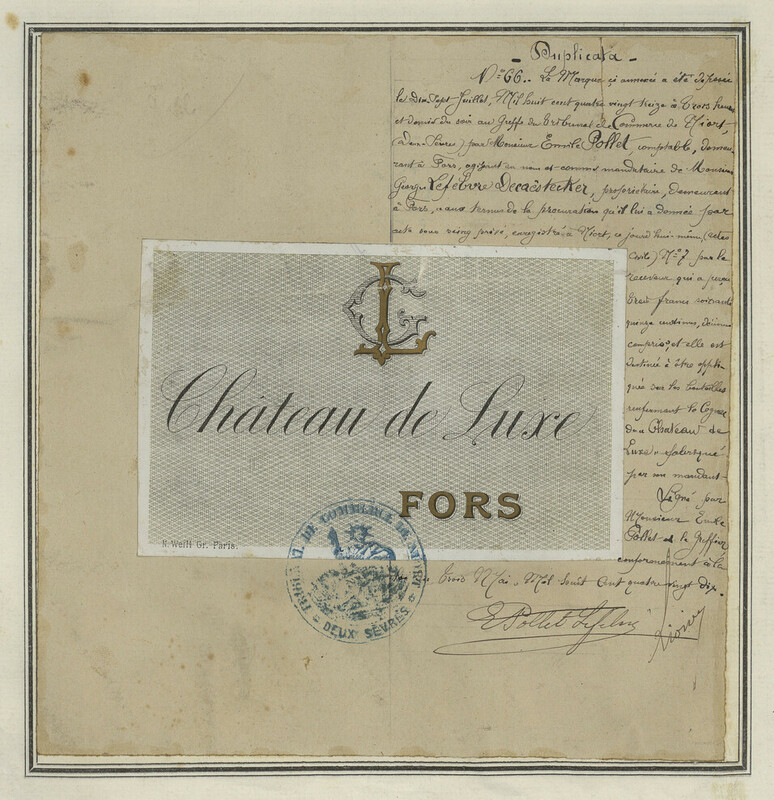 - Duplicata -
N° 66. La Marque ci annexée a été déposée
le dix Sept Juillet, Mil huit cent quatre vingt treize à trois heures
et demie du soir au Greffe du tribunal de Commerce de Niort,
(deux-Sèvres) par Monsieur Emile Pollet, comptable, demeu-
rant à Fors, agissant au nom et comme mandataire de Monsieur
Georges Lefebvre Decaëstecker, propriétaire, demeurant
à Fors, aux termes de la procuration qu'il lui a donnée par
acte sous seing privé, enregistré à Niort, ce jourd'hui même, (actes
civils) N° 7 par le
receveur qui a perçu
trois francs soixante
quinze centimes, décimes
compris, et elle est
destinée à être appli-
quée sur les bouteilles
renfermant le Cognac
du Chateau de
Luxe fabriqué
par son mandant
Signé par
Monsieur Emile
Pollet et le Greffier
conformément à la
trois Mai, Mil huit Cent quatre vingt dix.
E Pollet Lefebvre
GL
Château de Luxe
FORS
N. Weill Gr. Paris.
TRIBUNAL DE COMMERCE DE NIORT
DEUX SÈVRES